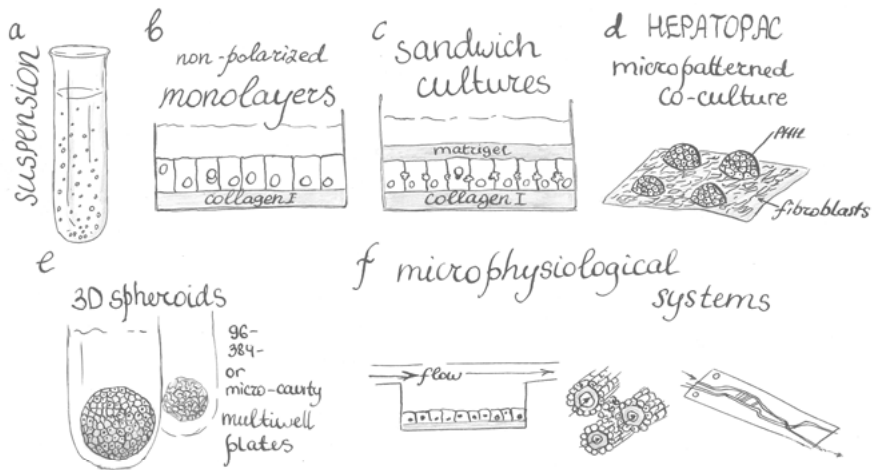 a
SUSPENSION
b
non-polarized
monolayers
collagen I
c
sandwich
cultures
matrigel
collagen I
d HEPATOPAC
micropatterned
co-culture
PHH
fibroblasts
e
3D spheroids
96-
384-
or
micro-cavity
multiwell
plates
f microphysiological
systems
flow